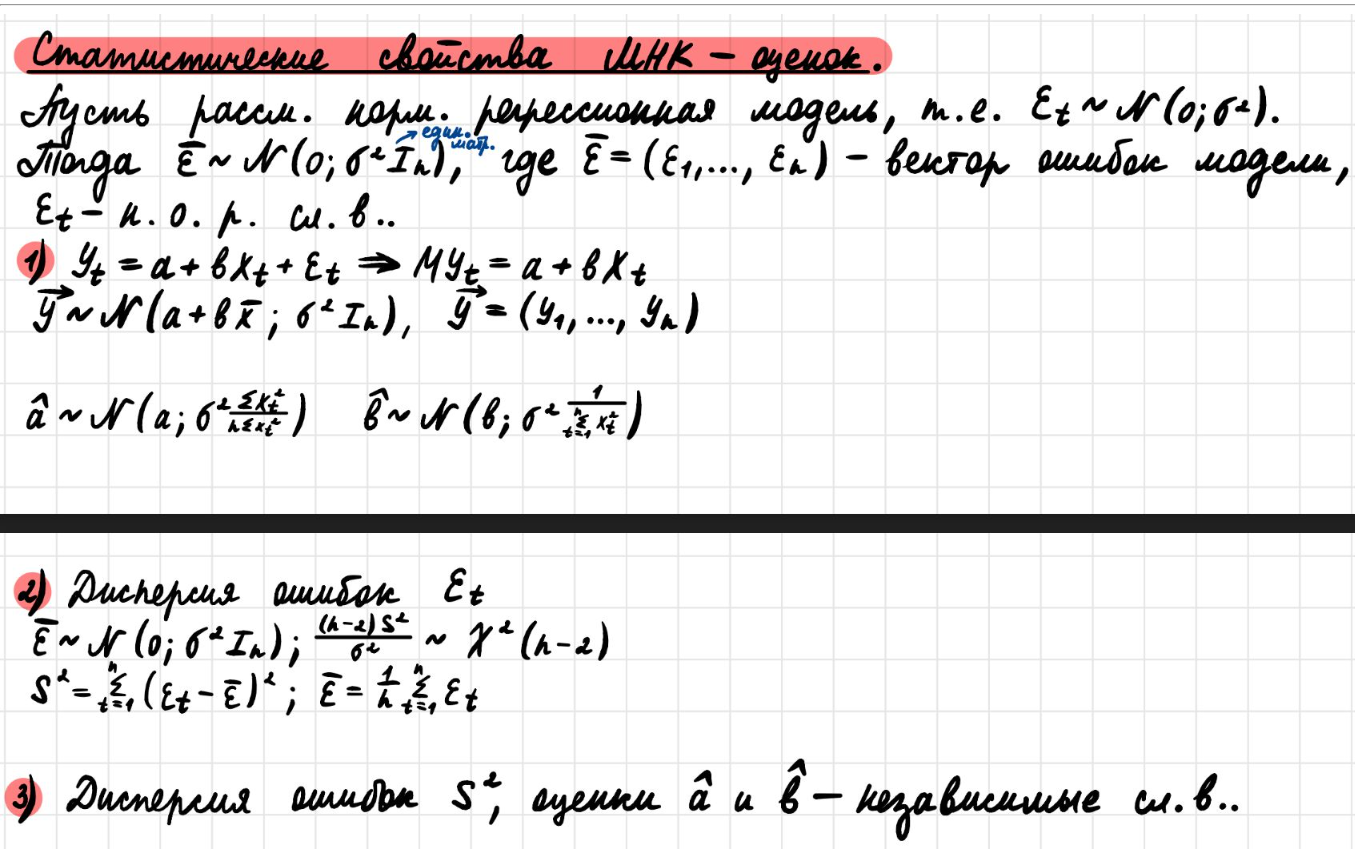 Статистические свойства МНК – оценок.
Пусть рассм. норм. регрессионная модель, т.е. εₜ ~ N(0; σ²).
един. матр.
Тогда ε̅ ~ N(0; σ² Iₙ), где ε̅ = (ε₁,..., εₙ) – вектор ошибок модели,
εₜ – н. о. р. сл. в..
1) Yₜ = a + bXₜ + εₜ ⇒ MYₜ = a + bXₜ
Y⃗ ~ N(a + b x̅; σ² Iₙ), Y⃗ = (Y₁, ..., Yₙ)
â ~ N(a; σ² ΣXₜ²/nΣxₜ²) b̂ ~ N(b; σ² 1/Σₜ₌₁ⁿ xₜ²)
2) Дисперсия ошибок εₜ
ε̅ ~ N(0; σ² Iₙ); (n-2)S²/σ² ~ χ²(n-2)
S² = Σₜ₌₁ⁿ (εₜ - ε̅)²; ε̅ = 1/n Σₜ₌₁ⁿ εₜ
3) Дисперсия ошибок S², оценки â и b̂ – независимые сл. в..